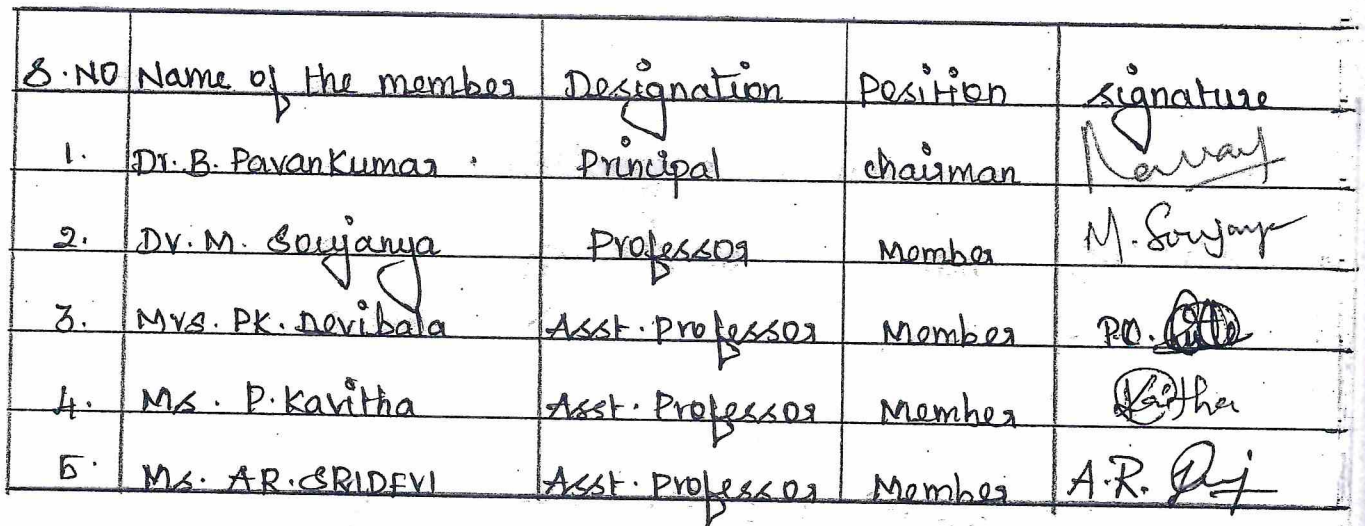 S.NO Name of the member Designation Position signature
1. Dr. B. Pavan Kumar Principal chairman
2. Dr. M. Soujanya Professor Member M. Soujanya
3. Mrs. PK. Devibala Asst. Professor Member
4. Ms. P. Kavitha Asst. Professor Member Kavitha
5. Ms. AR. SRIDEVI Asst. Professor Member A.R.